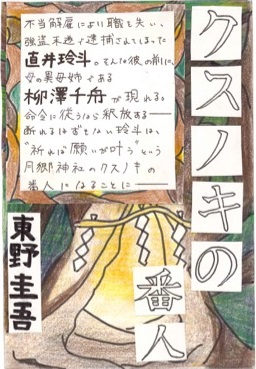 クスノキの
番人
不当解雇により職を失い、
強盗未遂で逮捕されてしまった
直井玲斗。そんな彼の前に、
父の異母姉である
柳澤千舟が現れる。
命令に従うなら釈放する――
断れるはずもない玲斗は、
"祈れば願いが叶う"という
月郷神社のクスノキの
番人になることに――
東野圭吾